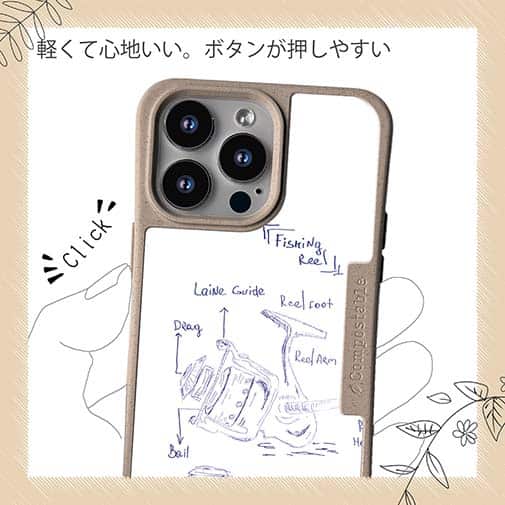 軽くて心地いい。ボタンが押しやすい
Click
Fishing
Reel
Laine Guide
Reel foot
Drag
Reel Arm
Bail
Compostable